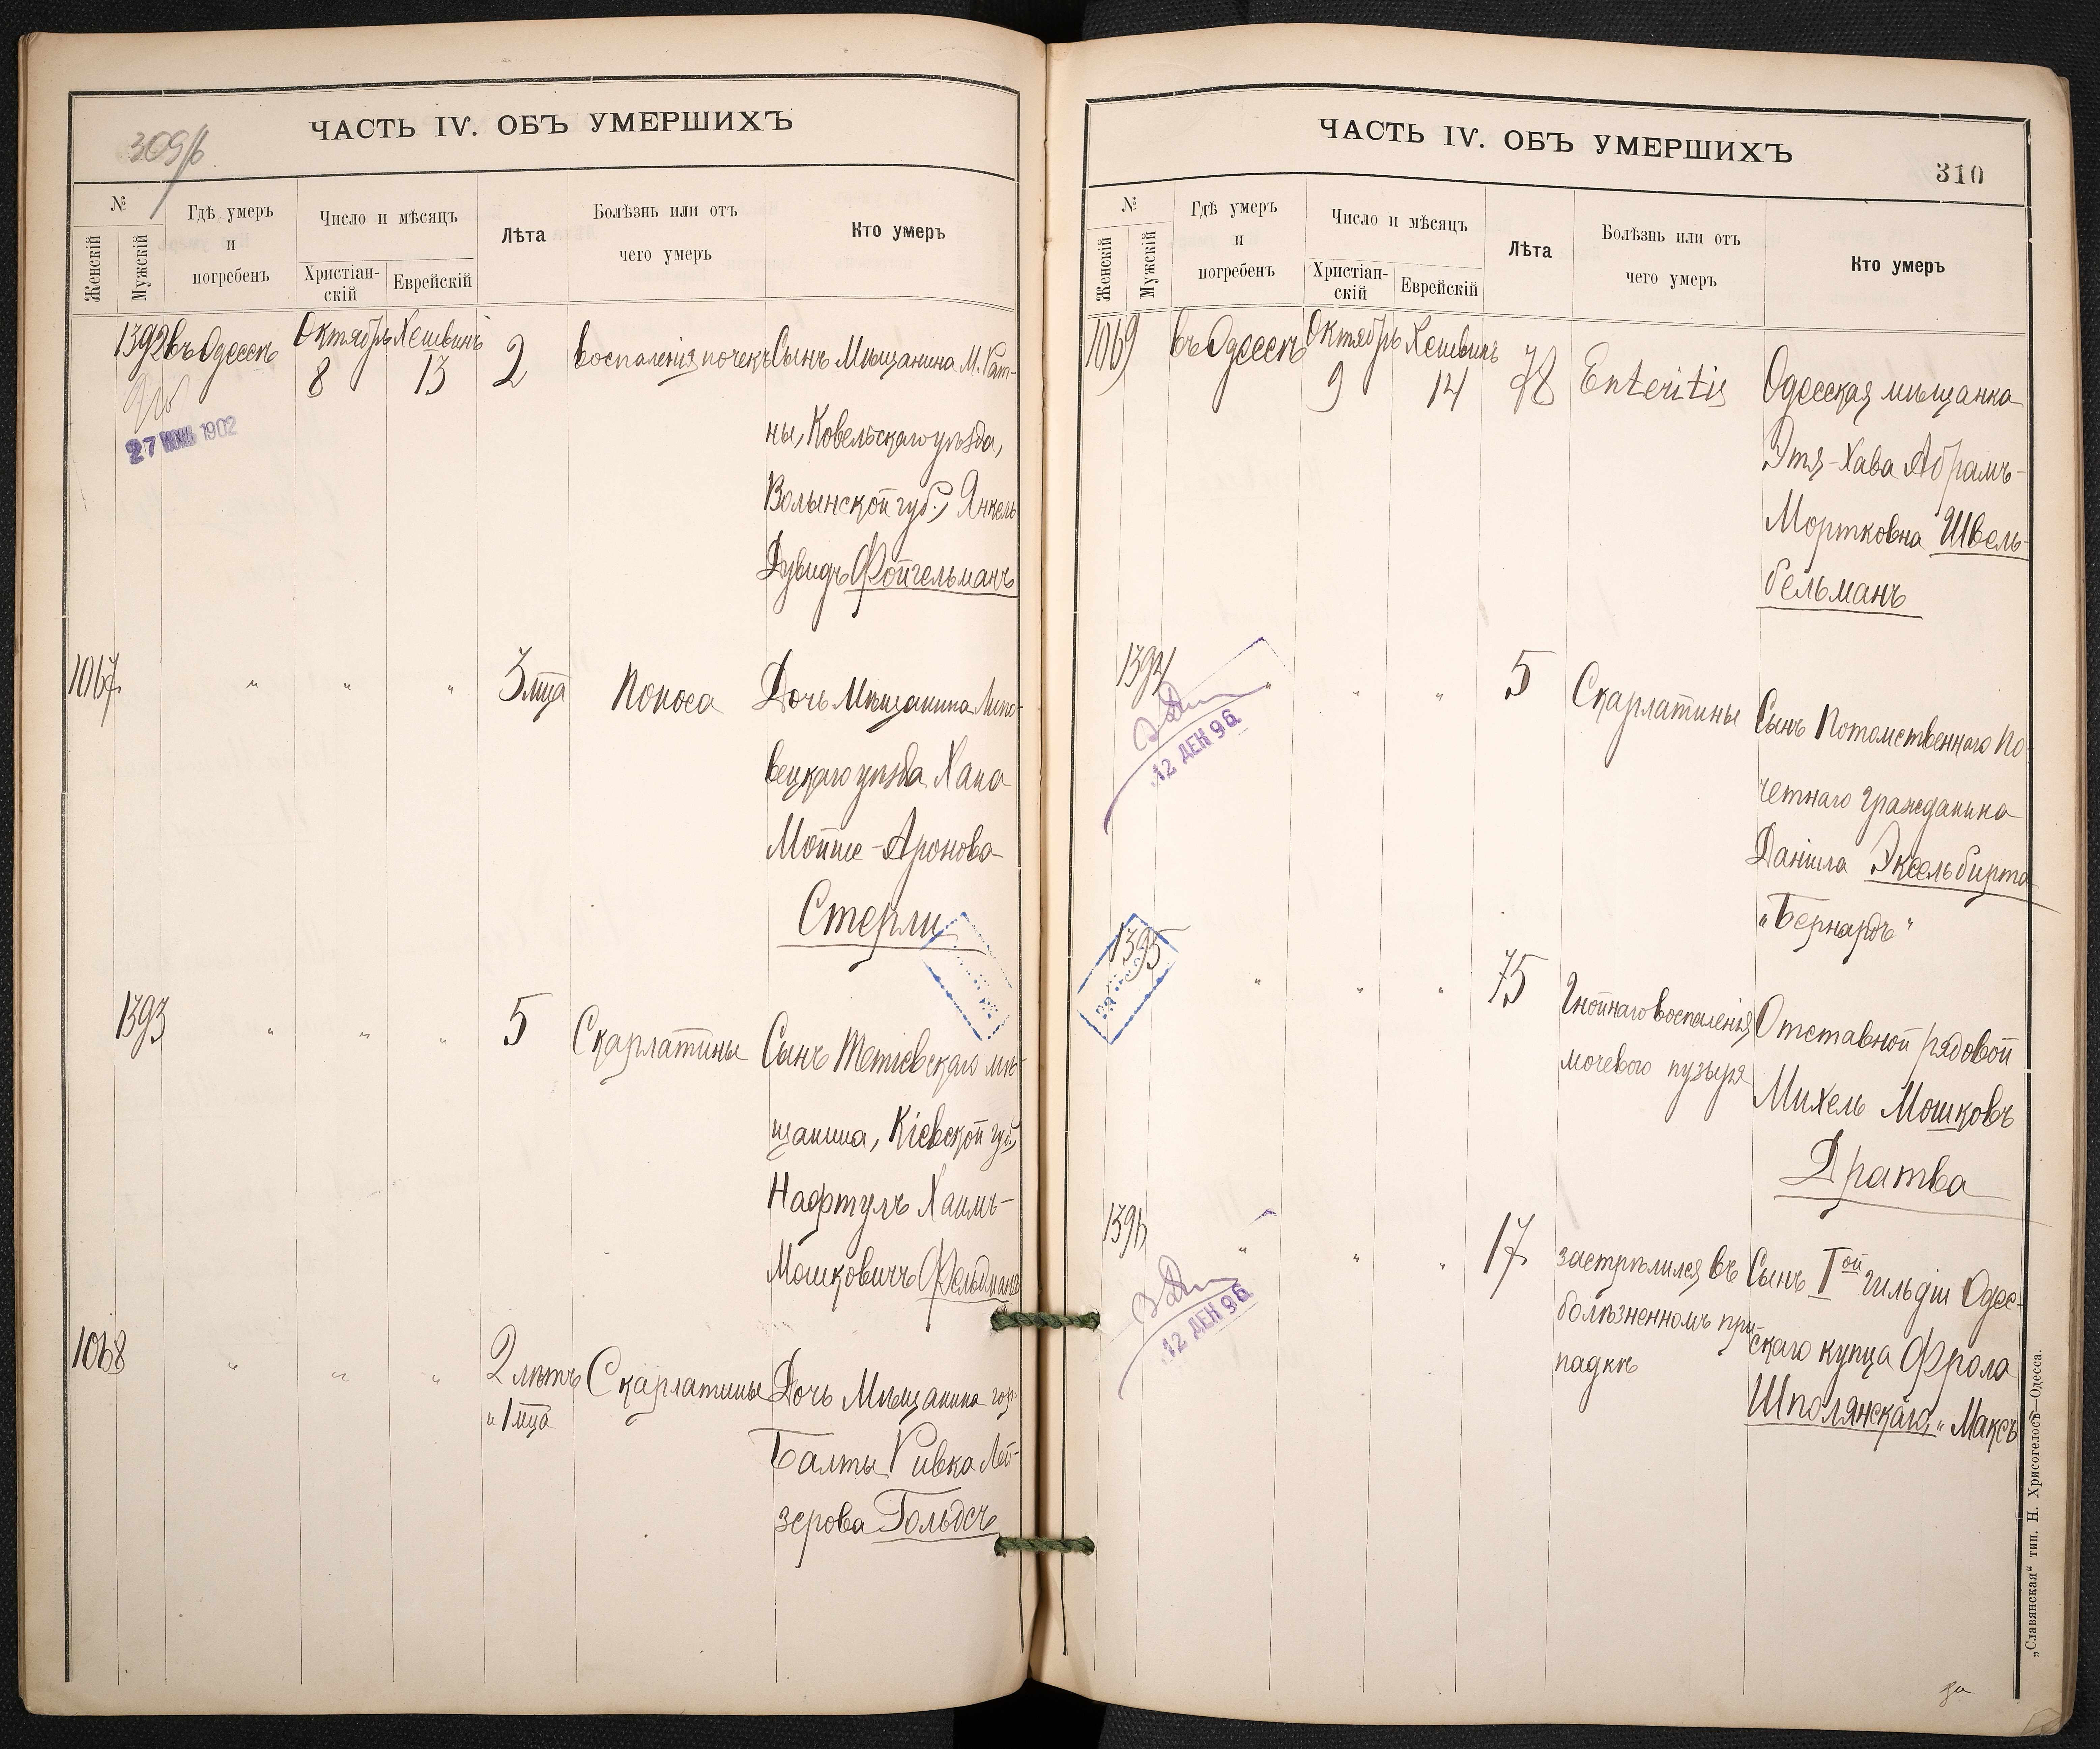 309/б
ЧАСТЬ IV. ОБЪ УМЕРШИХЪ
№
Женскій
Мужскій
Гдѣ умеръ
и
погребенъ
Число и мѣсяцъ
Христіан-
скій
Еврейскій
Лѣта
Болѣзнь или отъ
чего умеръ
Кто умеръ
1392 въ Одессѣ Октябрь Хешвинъ 2 воспаленія почекъ Сынъ Мѣщанина М. Рат-
8 13
27 1902
ны, Ковельскаго уѣзда,
Волынской губ., Янкель
Дувидъ Фойгельманъ
1067 " " " 3 мца Поноса Дочь Мѣщанина Липо-
вецкаго уѣзда Хана
Мойше-Аронова
Стерли
1393 " " " 5 Скарлатины Сынъ Тетіевскаго мѣ-
щанина, Кіевской губ.,
Нафтулъ Хаимъ-
Мошковичъ Фельдманъ
1068 " " " 2 лѣтъ Скарлатины Дочь Мѣщанина гор.
и 1 мца
Балты Ривка Лей-
зерова Гольдсъ
ЧАСТЬ IV. ОБЪ УМЕРШИХЪ
310
№
Женскій
Мужскій
Гдѣ умеръ
и
погребенъ
Число и мѣсяцъ
Христіан-
скій
Еврейскій
Лѣта
Болѣзнь или отъ
чего умеръ
Кто умеръ
1069 въ Одессѣ Октябрь Хешвинъ 78 Enteritis Одесская мѣщанка
9 14
Этя-Хава Абрамъ-
Мортковна Швель-
бельманъ
1394 " " " 5 Скарлатины Сынъ Потомственнаго По-
12 ДЕК 96
четнаго гражданина
Даніила Эксельбирта
"Бернардъ"
1395 " " " 75 Гнойнаго воспаленія Отставной рядовой
мочевого пузыря Михель Мошковъ
Дратва
1396 " " " 17 застрѣлился въ Сынъ Iой гильдіи Одес-
12 ДЕК 96
болѣзненномъ при- скаго купца Фрола
падкѣ Шполянскаго, "Максъ"
„Славянская“ тип. Н. Хрисогелосъ—Одесса.